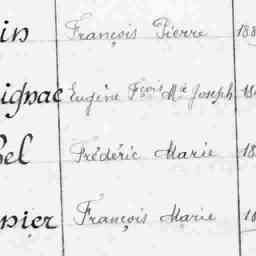 in François Pierre 188
ignac Eugène Fçois Mie Joseph
bel Frédéric Marie 18
nier François Marie 18